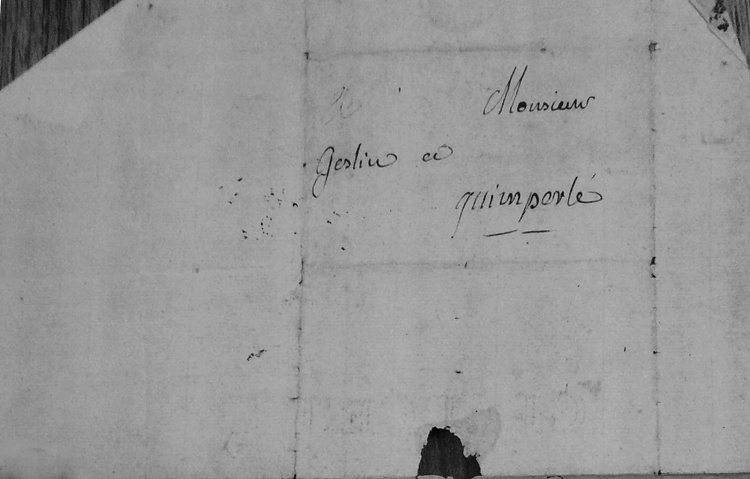 Monsieur
Geslin a
quimperlé